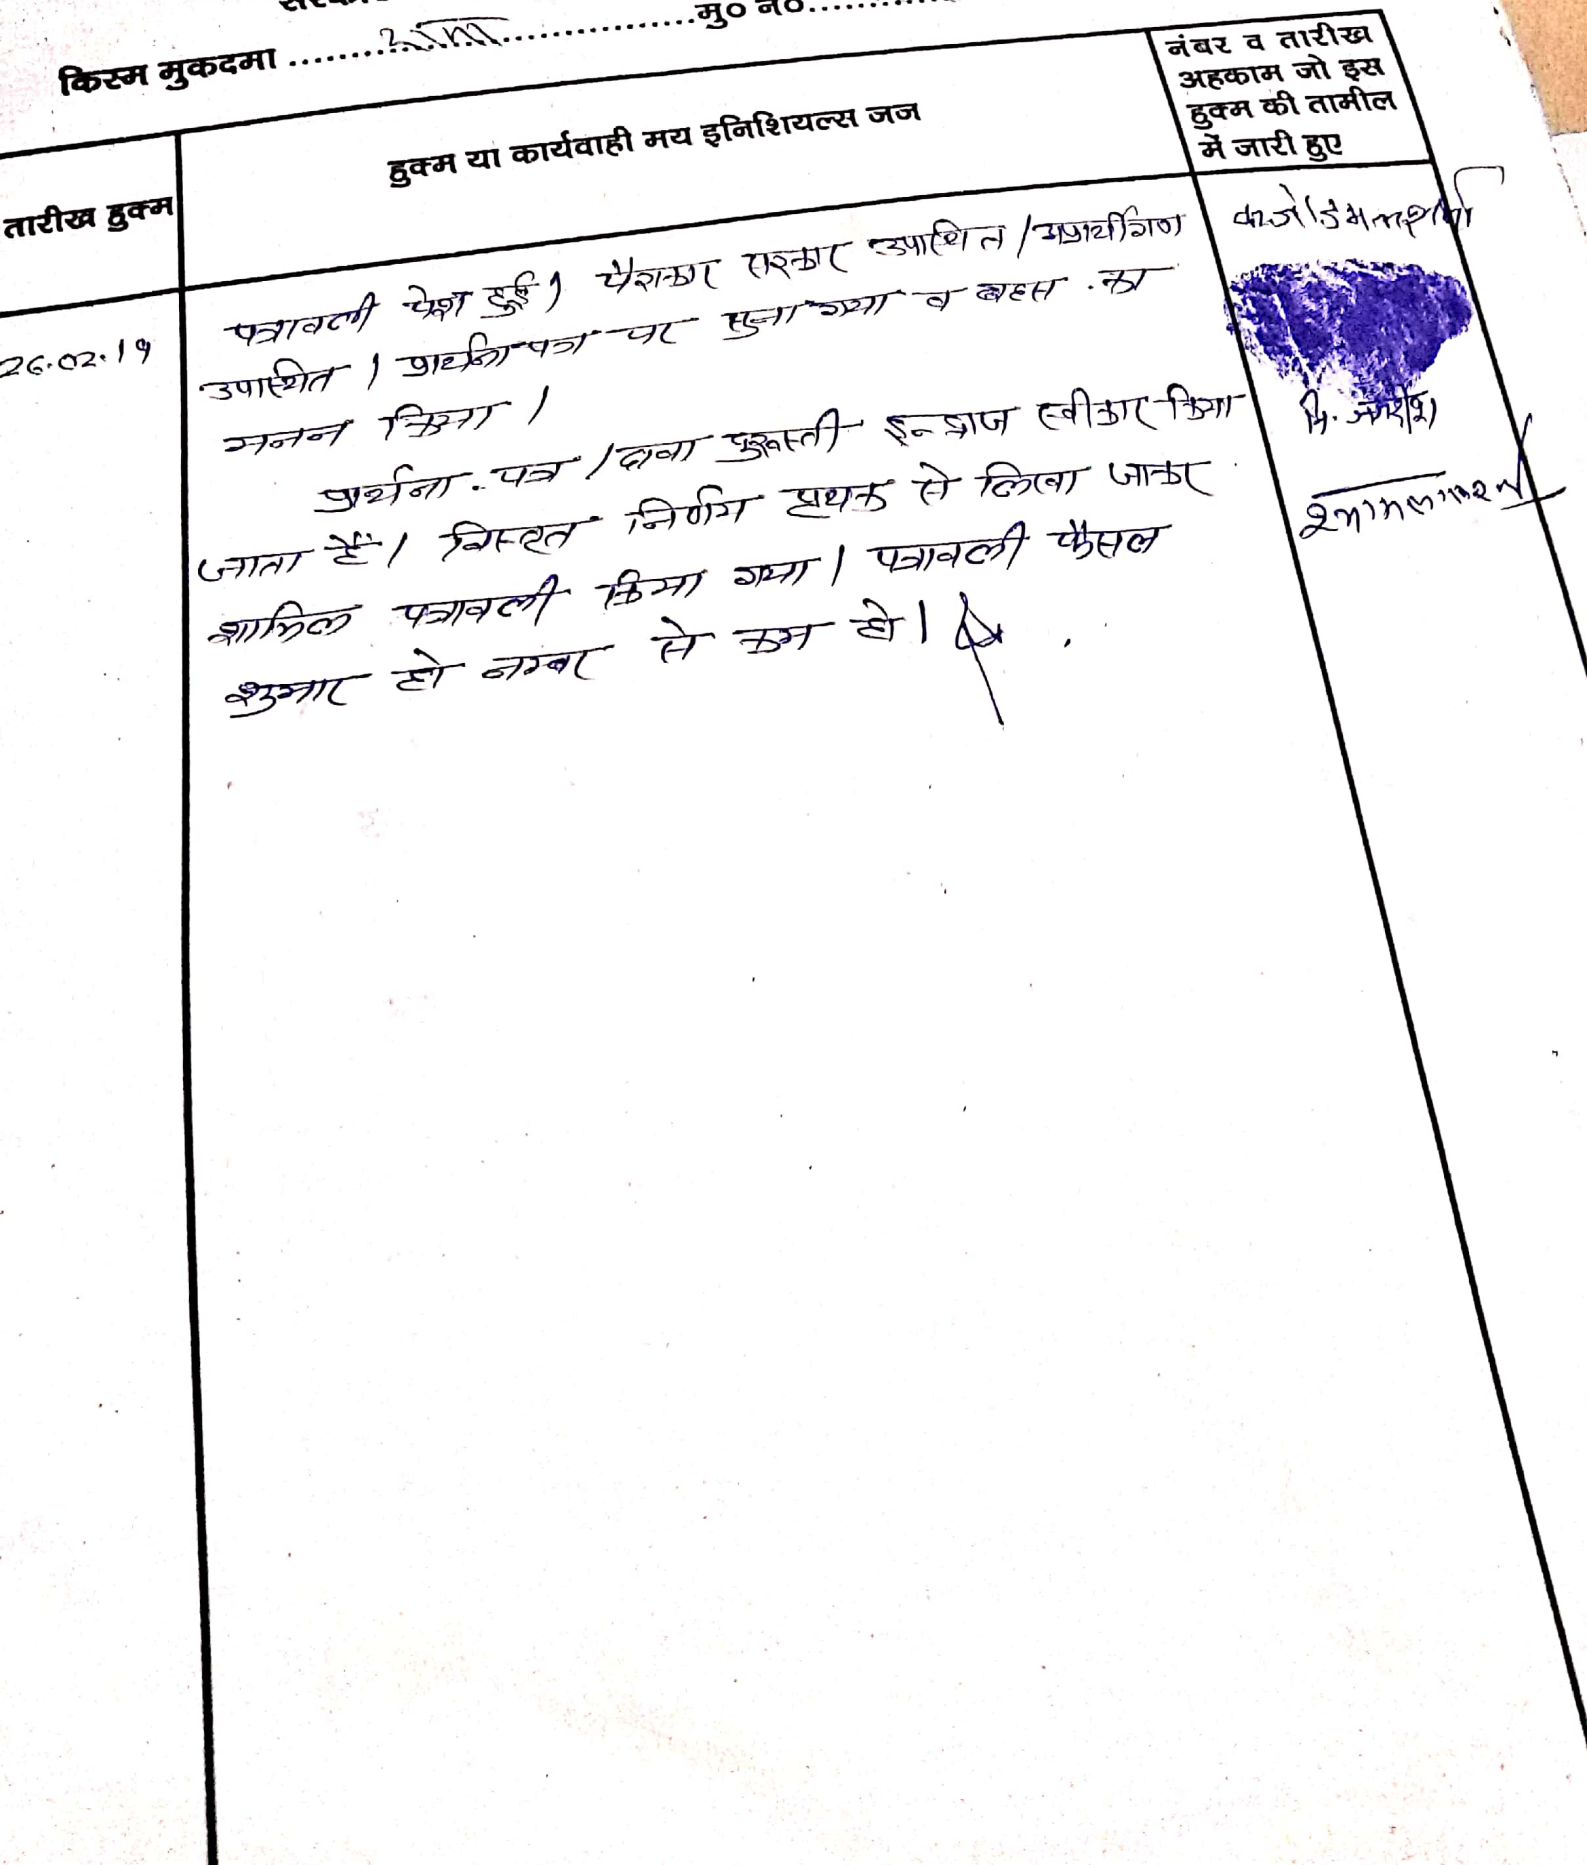 किस्म मुकदमा ........................मु० न०..........
तारीख हुक्म
हुक्म या कार्यवाही मय इनिशियल्स जज
नंबर व तारीख
अहकाम जो इस
हुक्म की तामील
में जारी हुए
26.02.19
पत्रावली पेश हुई। पैराकार सरकार उपास्थित / अप्रार्थीगण
उपास्थित। प्रार्थना पत्र पर सुना गया व बहस का
मनन किया।
प्रार्थना पत्र / दावा दुरूस्ती इन्द्राज स्वीकार किया
जाता हैं। विस्तृत निर्णय प्रथक से लिखा जाकर
शामिल पत्रावली किया गया। पत्रावली फैसल
शुमार हो नम्बर से कम हो।
कजोडमल शर्मा
नि. जगदीश